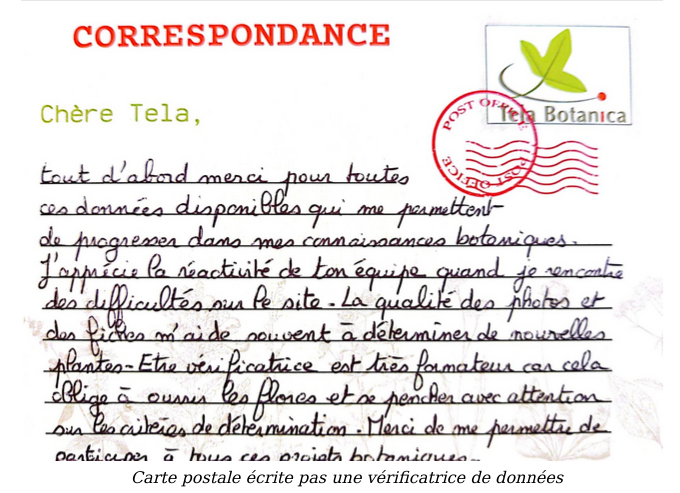 CORRESPONDANCE
Tela Botanica
POST OFFICE
POST OFFICE
Chère Tela,
tout d'abord merci pour toutes
ces données disponibles qui me permettent
de progresser dans mes connaissances botaniques.
J'apprécie la réactivité de ton équipe quand je rencontre
des difficultés sur le site. La qualité des photos et
des fiches m'aide souvent à déterminer de nouvelles
plantes. Etre vérificatrice est très formateur car cela
oblige à ouvrir les flores et se pencher avec attention
sur les critères de détermination. Merci de me permettre de
participer à tous ces projets botaniques.
Carte postale écrite pas une vérificatrice de données